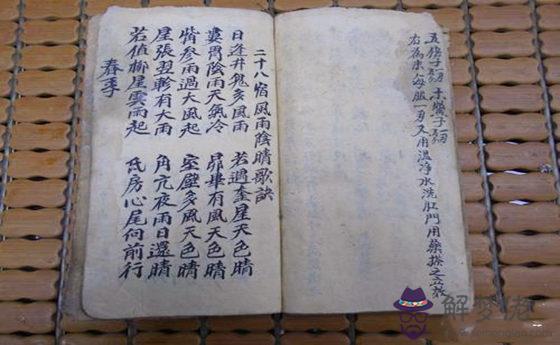 五倍子
二十八宿風雨陰晴歌訣
日逢井鬼多風雨 若遇奎星天色晴
婁胃陰雨天氣冷 昴畢有風天色晴
觜參雨過大風起 室壁多風天色晴
星張翌軫有大雨 角亢夜雨日還晴
若值柳星雲雨起 氐房心尾向前行
春季
右為末 一 又用溫淨水洗肛門用藥搽之立效
解梦佬